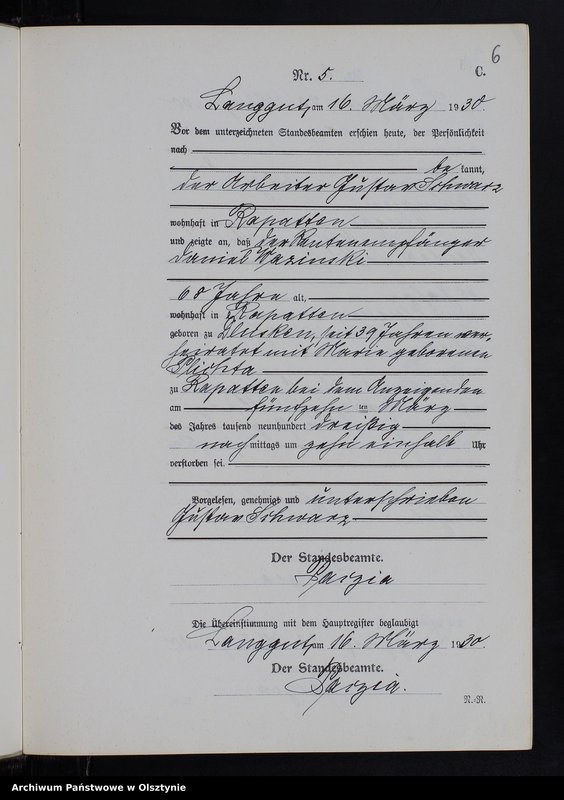 6
Nr. 5.
C.
Langgut, am 16. März 1930.
Vor dem unterzeichneten Standesbeamten erschien heute, der Persönlichkeit
nach
be kannt,
der Arbeiter Gustav Schwarz
wohnhaft in Rapatten
und zeigte an, daß der Rentenempfänger
Daniel
68 Jahre alt,
wohnhaft in Rapatten
geboren zu Dlusken, seit 39 Jahren ver-
heiratet mit Marie geborenen
Plichta
zu Rapatten bei dem Anzeigenden
am fünfzehn ten März
des Jahres tausend neunhundert dreißig
nach mittags um zehn einhalb Uhr
verstorben sei.
Vorgelesen, genehmigt und unterschrieben
Gustav Schwarz
Der Standesbeamte.
Die Übereinstimmung mit dem Hauptregister beglaubigt
Langgut, am 16. März 1930.
Der Standesbeamte.
N.-R.
Archiwum Państwowe w Olsztynie